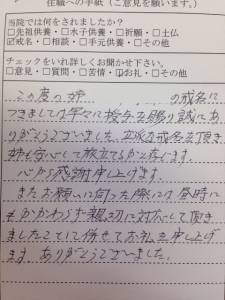 住職への手紙（ご意見を願います。）
当院では何をされましたか？
□先祖供養・□水子供養・□祈願・□土仏
☑戒名・□相談・□手元供養・□その他
チェックをいれ詳しくお聞かせ下さい。
□意見・□質問・□苦情・☑お礼・□その他
この度の姉 の戒名に
つきましては早々に授与を賜り誠にあ
りがとうございました。立派な戒名を頂き
姉も安心して旅立てるかと存じます。
心から感謝申し上げます。
またお願いに伺った際には昼時に
もかかわらず親切に対応して頂き
ましたこと 併せてお礼を申し上げ
ます。ありがとうございました。